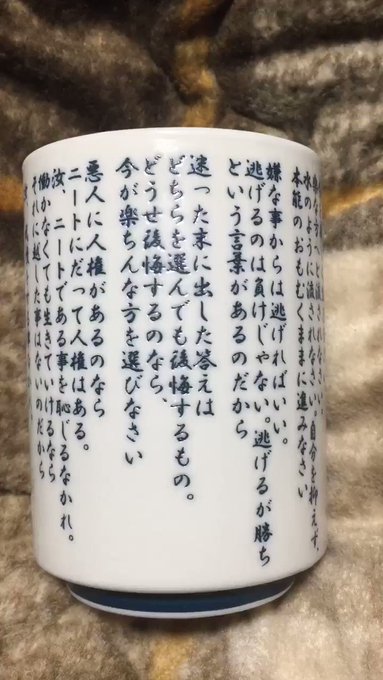 水のように流されなさい。自分を抑えず、
本能のおもむくままに進みなさい
嫌な事からは逃げればいい。
逃げるのは負けじゃない。逃げるが勝ち
という言葉があるのだから
迷った末に出した答えは
どちらを選んでも後悔するもの。
どうせ後悔するのなら、
今が楽ちんな方を選びなさい
悪人に人権があるのなら
ニートにだって人権はある。
汝、ニートである事を恥じるなかれ。
働かなくても生きていけるなら
それに越した事はないのだから